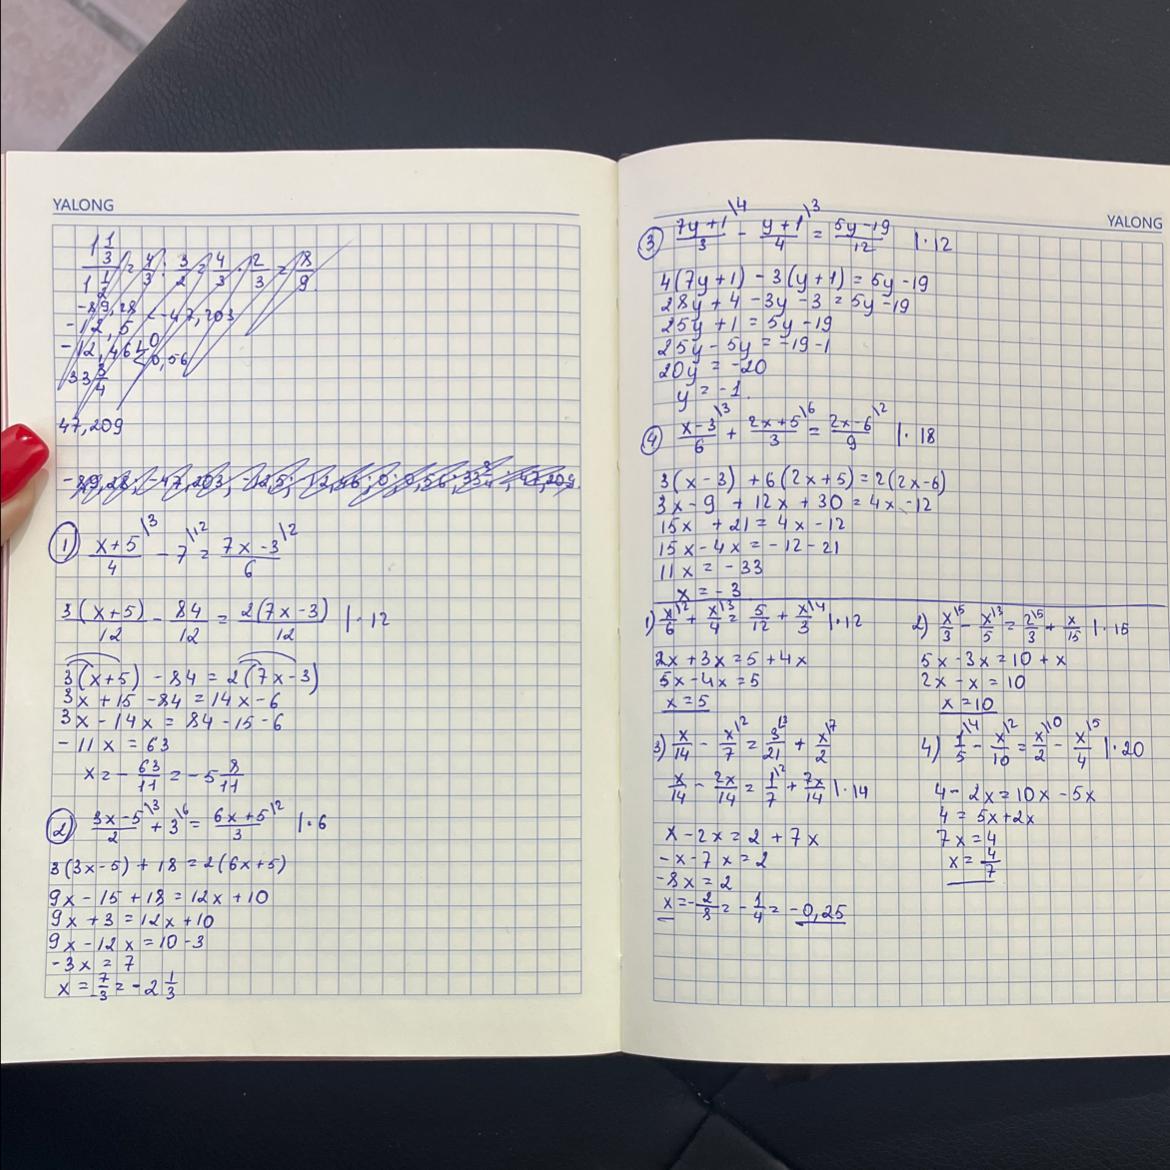 YALONG
1 1/3 / 1 1/2 = 4/3 : 3/2 = 4/3 · 2/3 = 8/9
-89,28 < -47,203
-12,5
-12,46 < 0
0,56
33 3/4
47,209
-89,28; -47,203; -12,5; -12,46; 0; 0,56; 33 3/4; 47,209.
① (x+5)/4 \3 - 7 \12 = (7x-3)/6 \2
3(x+5)/12 - 84/12 = 2(7x-3)/12 | · 12
3(x+5) - 84 = 2(7x-3)
3x + 15 - 84 = 14x - 6
3x - 14x = 84 - 15 - 6
- 11x = 63
x = - 63/11 = -5 8/11
② (3x-5)/2 \3 + 3 \6 = (6x+5)/3 \2 | · 6
3(3x-5) + 18 = 2(6x+5)
9x - 15 + 18 = 12x + 10
9x + 3 = 12x + 10
9x - 12x = 10 - 3
-3x = 7
x = 7/-3 = -2 1/3
YALONG
③ (7y+1)/3 \4 - (y+1)/4 \3 = (5y-19)/12 | · 12
4(7y+1) - 3(y+1) = 5y - 19
28y + 4 - 3y - 3 = 5y - 19
25y + 1 = 5y - 19
25y - 5y = -19 - 1
20y = -20
y = -1.
④ (x-3)/6 \3 + (2x+5)/3 \6 = (2x-6)/9 \2 | · 18
3(x-3) + 6(2x+5) = 2(2x-6)
3x - 9 + 12x + 30 = 4x - 12
15x + 21 = 4x - 12
15x - 4x = -12 - 21
11x = -33
x = -3
1) x/6 \2 + x/4 \3 = 5/12 + x/3 \4 | · 12
2x + 3x = 5 + 4x
5x - 4x = 5
x = 5
2) x/3 \5 - x/5 \3 = 2/3 \5 + x/15 | · 15
5x - 3x = 10 + x
2x - x = 10
x = 10
3) x/14 - x/7 \2 = 3/21 \3 + x/2 \7
x/14 - 2x/14 = 1/7 \2 + 7x/14 | · 14
x - 2x = 2 + 7x
-x - 7x = 2
-8x = 2
x = - 2/8 = - 1/4 = -0,25
4) 1/5 \4 - x/10 \2 = x/2 \10 - x/4 \5 | · 20
4 - 2x = 10x - 5x
4 = 5x + 2x
7x = 4
x = 4/7